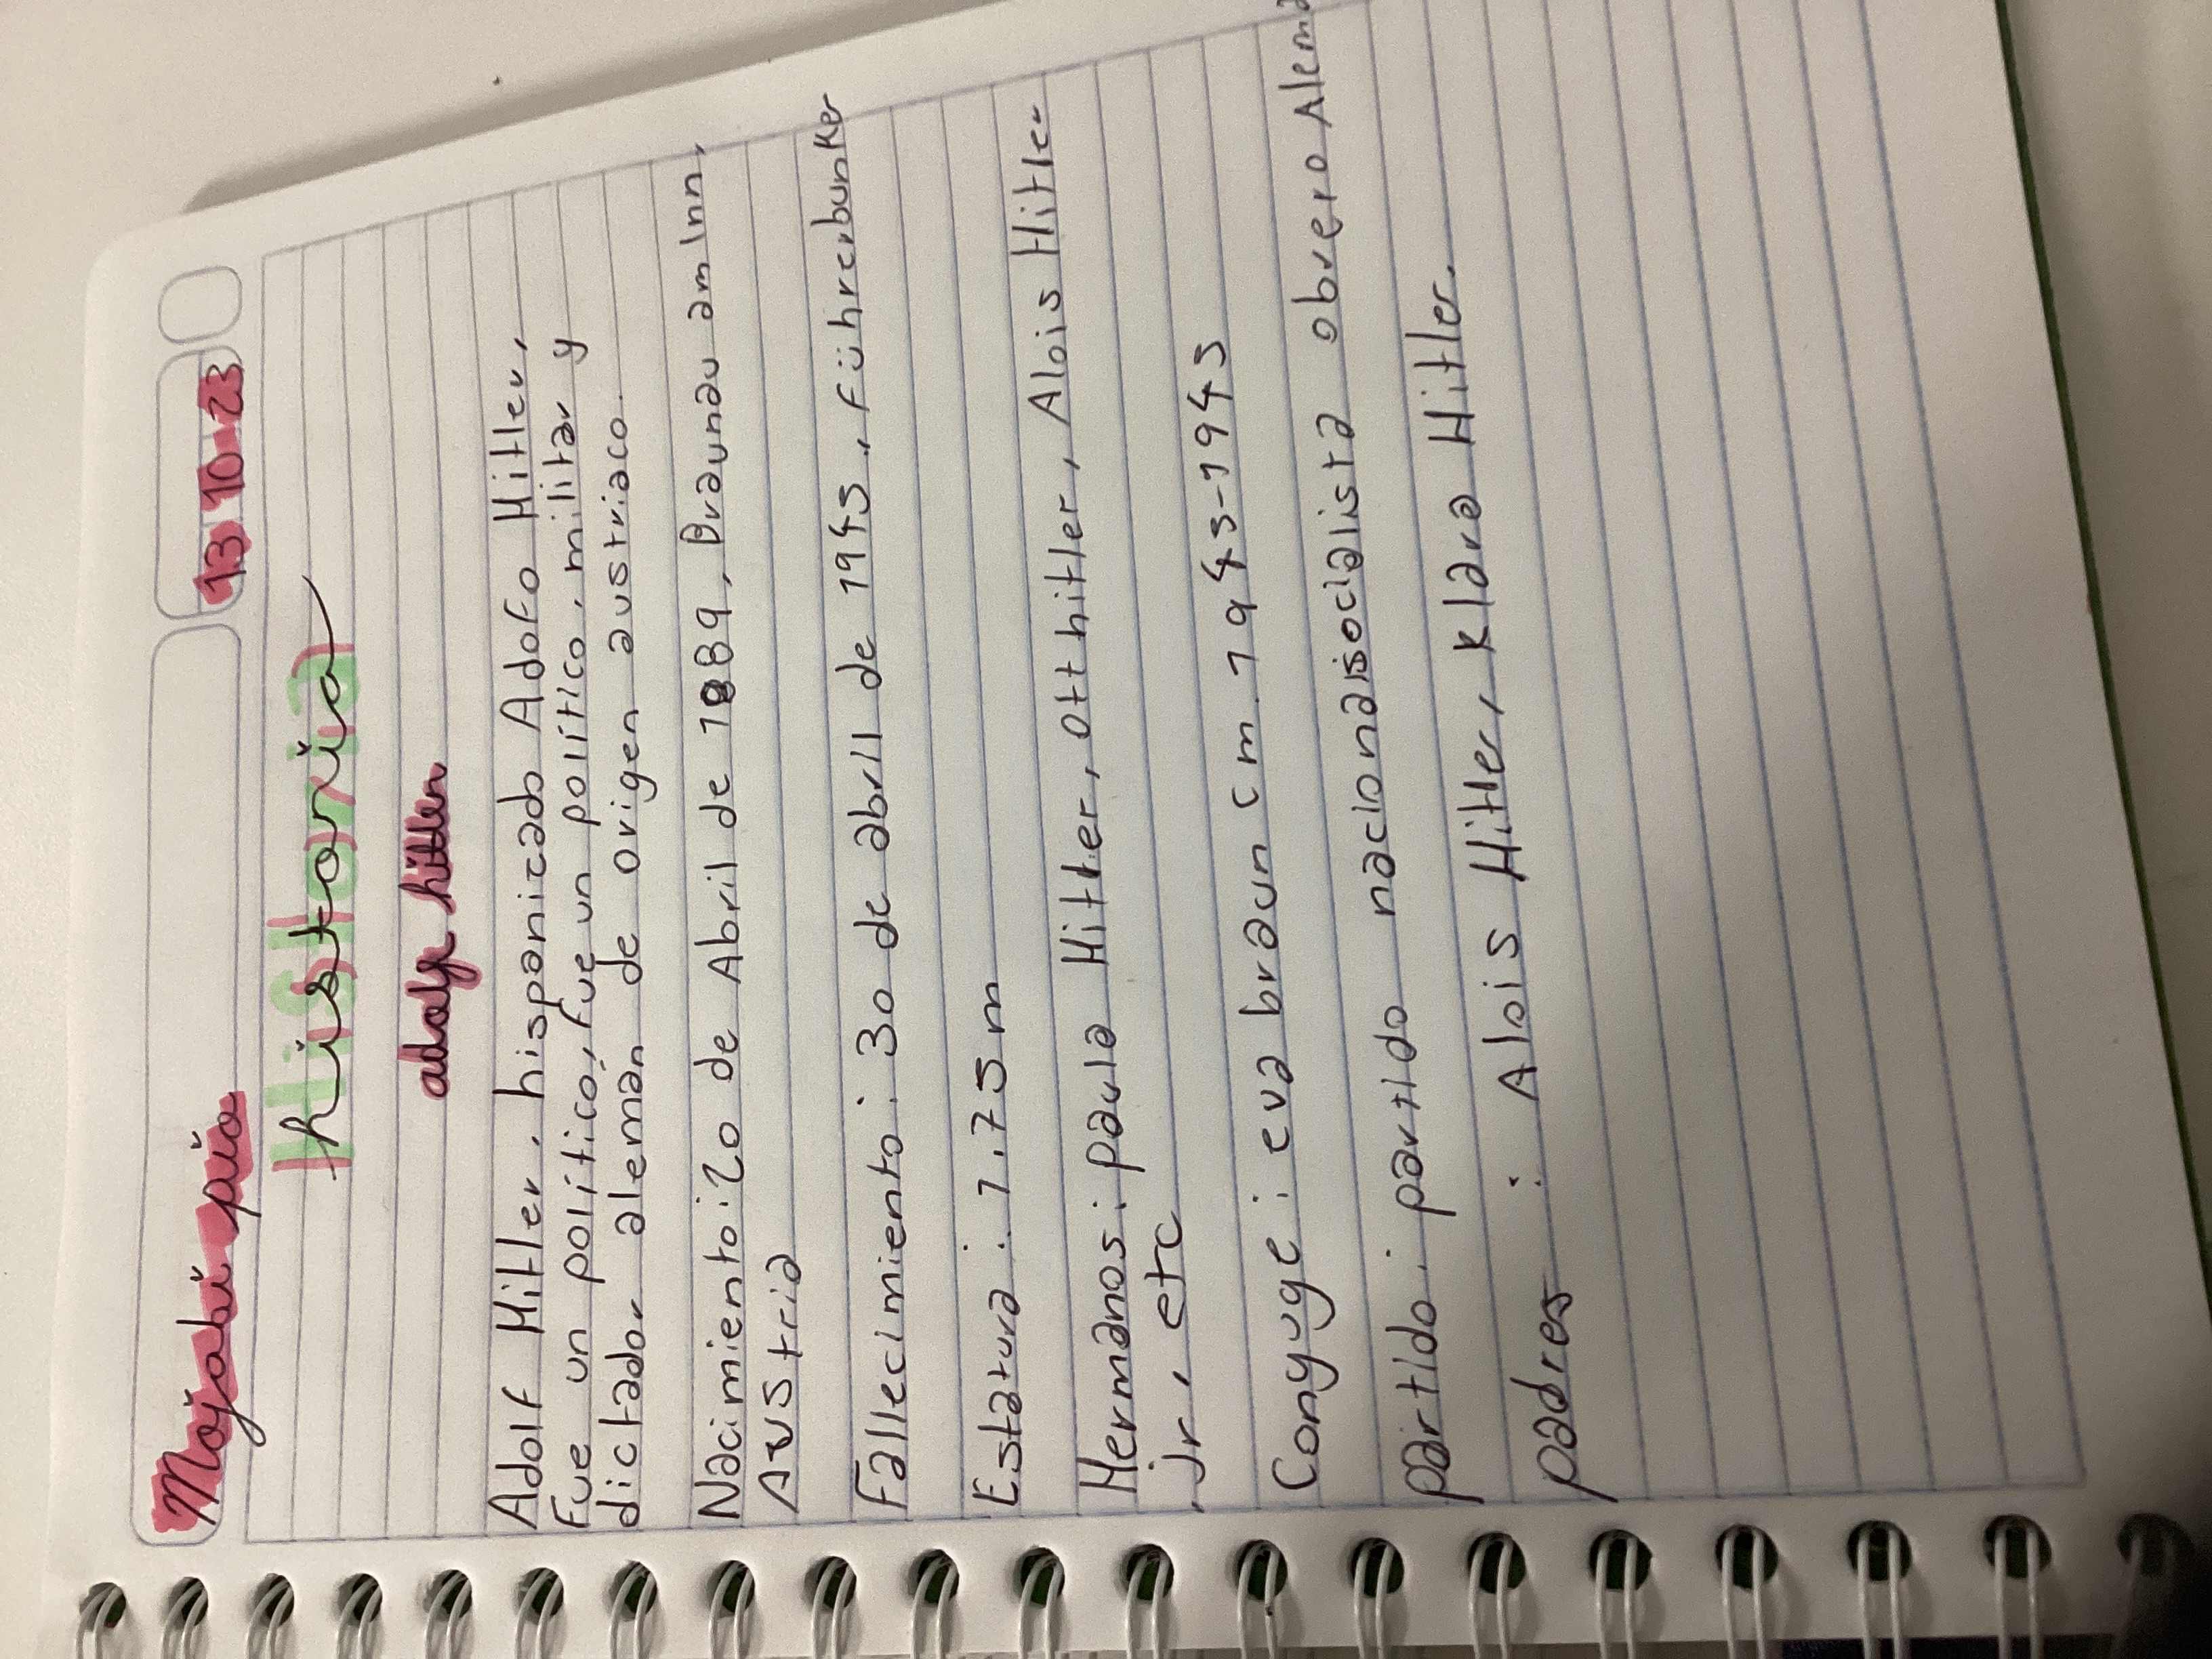 Mojabi pio
13 10 23
historia
adolf hitler
Adolf Hitler, hispanicado Adofo Hitler,
Fue un político, fue un político, militar y
dictador alemán de origen austriaco.
Nacimiento: 20 de Abril de 1889, Braunau am Inn,
Austria
Fallecimiento: 30 de abril de 1945, Führerbunker
Estatura: 1.75 m
Hermanos: paula Hitler, Ott hitler, Alois Hitler
Jr, etc
Conyuge: eva braun cm. 1945-1945
partido: partido nacionalsocialista obrero Alema
padres : Alois Hitler, Klara Hitler.